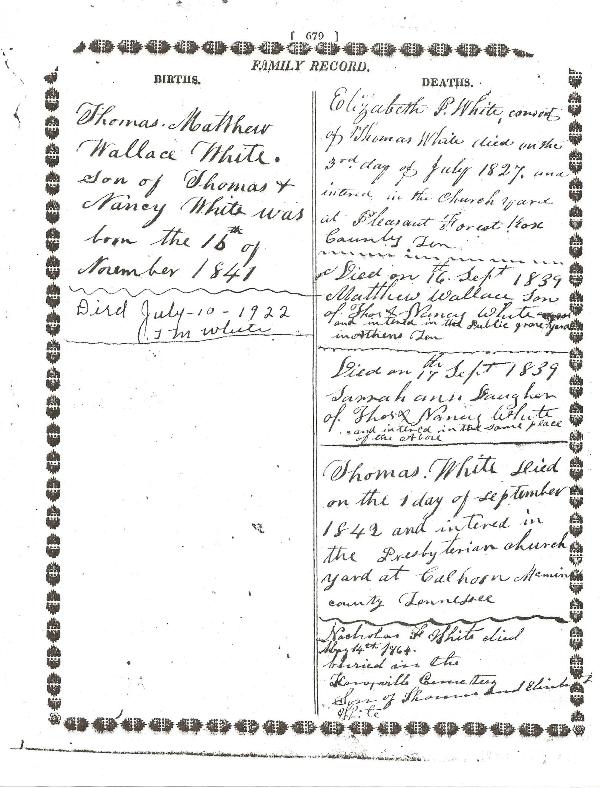 [ 679 ]
FAMILY RECORD.
BIRTHS.
Thomas. Matthew
Wallace White.
son of Thomas &
Nancy White was
born the 16th of
November 1841
Died July-10-1922
J M White
DEATHS.
Elizabeth P. White, consort
of Thomas White died on the
3rd day of July 1827. and
intered in the Church yard
at Pleasant Forest Nox
County Ten
Died on 16. Sept 1839
Matthew Wallace Son
of Thos & Nancy White
and intered in the Public grave yard
in Athens Ten
Died on 17th Sept 1839
Sarrah ann Daughter
of Thos & Nancy White
and intered in the same place
of the above
Thomas. White Died
on the 1 day of September
1842 and intered in
the Presbyterian church
yard at Calhoon Mcminn
county Tennessee
F White died
May 4th 1864.
buried in the
Knoxville Cemetery
Son of Thomas and
White